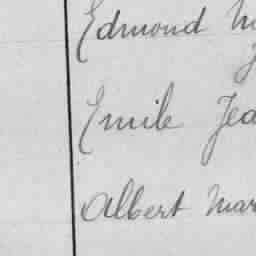 Edmond
Emile Jea
Albert Mar